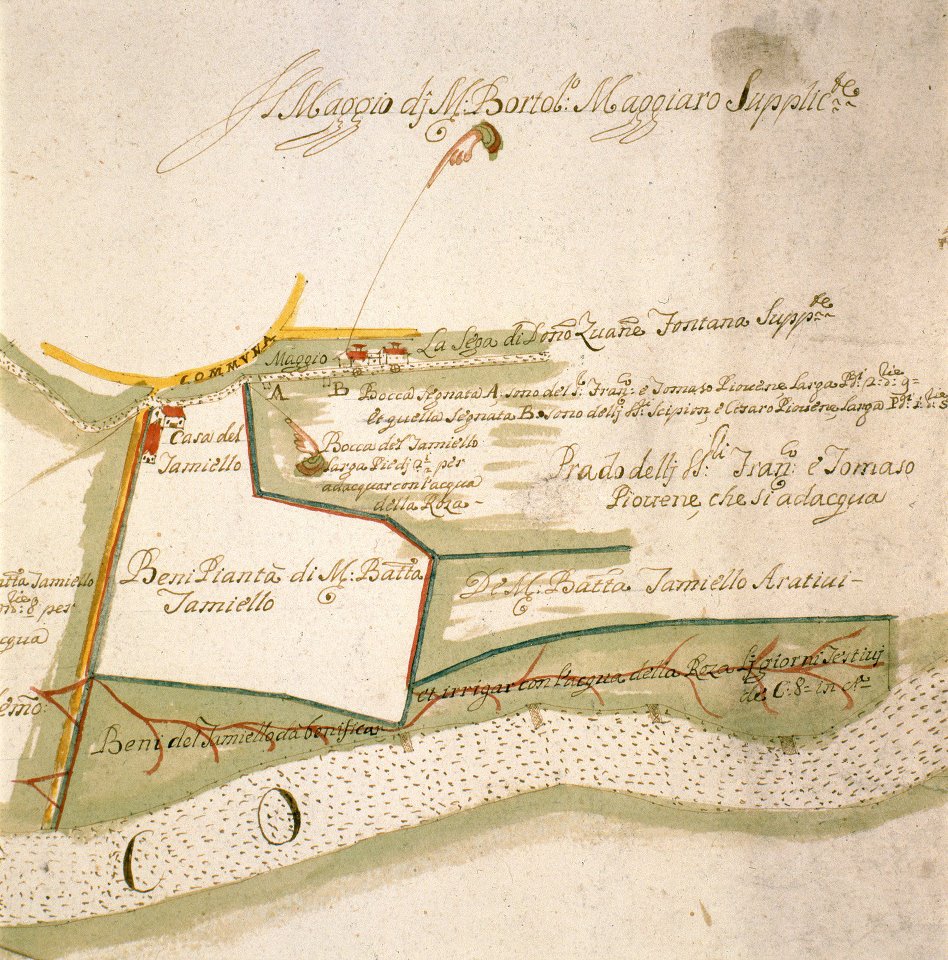 Il Maggio dj M: Bortol:º Maggiaro Supplic:te
La Sega di Domº Zuane Fontana Supp:te
COMMVNA
Maggio
A
B
Bocca Segnata A. sono del Sr Franco: e Tomaso Piovene larga
et quella Segnata B. sono delj SS:ri Scipion, e Cesaro Piovene larga
Casa del
Tamiello
Bocca del Tamiello
larga Piedj 2½ per
adacquar con l'acqua
della Roza -
Prado dellj SS:ri Franco: e Tomaso
Piovene, che si adacqua
Beni Piantà di M: Batta
Tamiello
De M: Batta Tamiello Arativi -
Tamiello
8 per
cqua
et irrigar con l'acqua della Roza li giorni Festivj
de C: 8 = in
Beni del Tamiello da benificar
C O